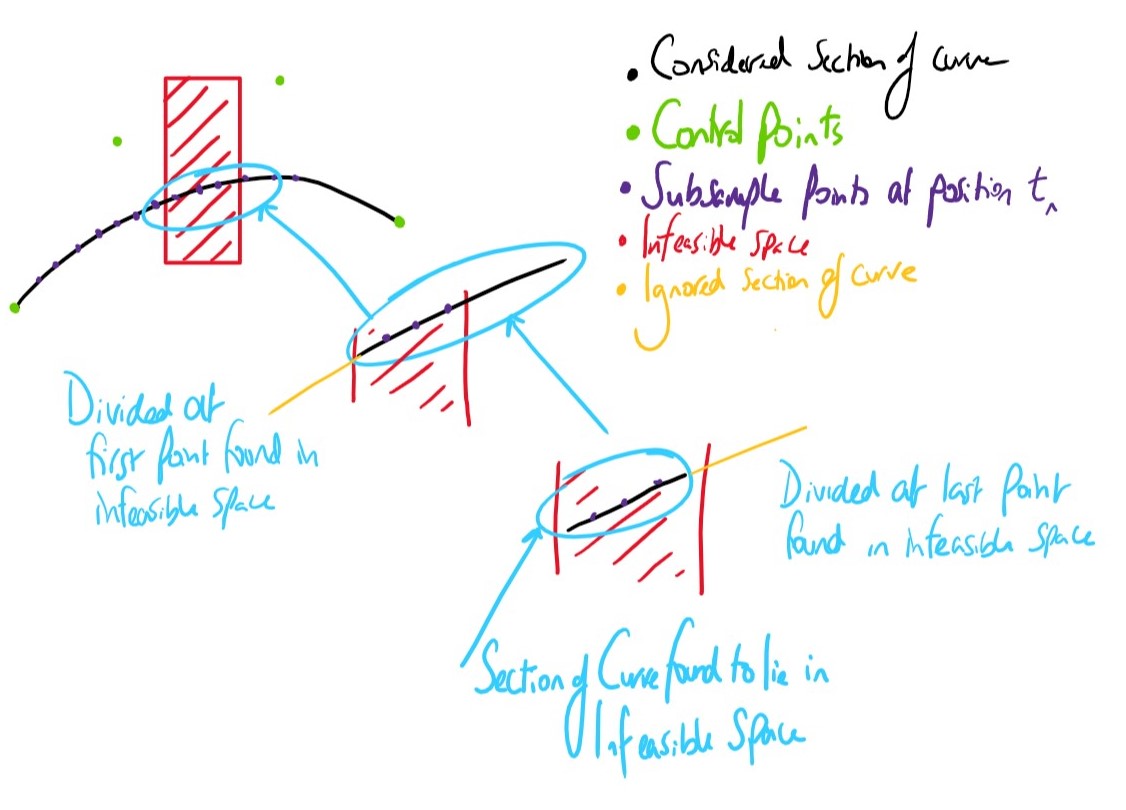 • Considered Section of Curve
• Control Points
• Subsample Points at position tₙ
• Infeasible Space
• Ignored Section of Curve
Divided at
first Point found in
infeasible Space
Divided at last Point
found in infeasible Space
Section of Curve found to lie in
Infeasible Space